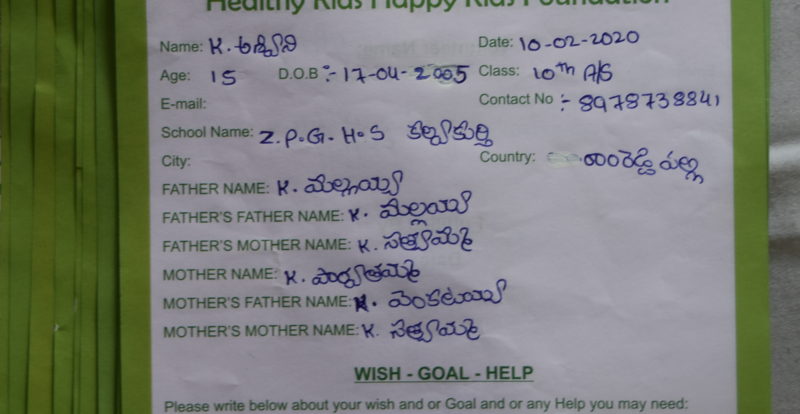 Healthy Kids Happy Kids Foundation
Name: K. అశ్విని Date: 10-02-2020
Age: 15 D.O.B :- 17-04-2005 Class: 10th A/S
E-mail: Contact No :- 8978738841
School Name: Z.P.G.H.S కల్వకుర్తి
City: Country:
FATHER NAME: K. మల్లయ్య
FATHER'S FATHER NAME: K. మల్లయ్య
FATHER'S MOTHER NAME: K. సత్యమ్మ
MOTHER NAME: K. పార్వతమ్మ
MOTHER'S FATHER NAME: K. వెంకటయ్య
MOTHER'S MOTHER NAME: K. సత్యమ్మ
WISH - GOAL - HELP
Please write below about your wish and or Goal and or any Help you may need: